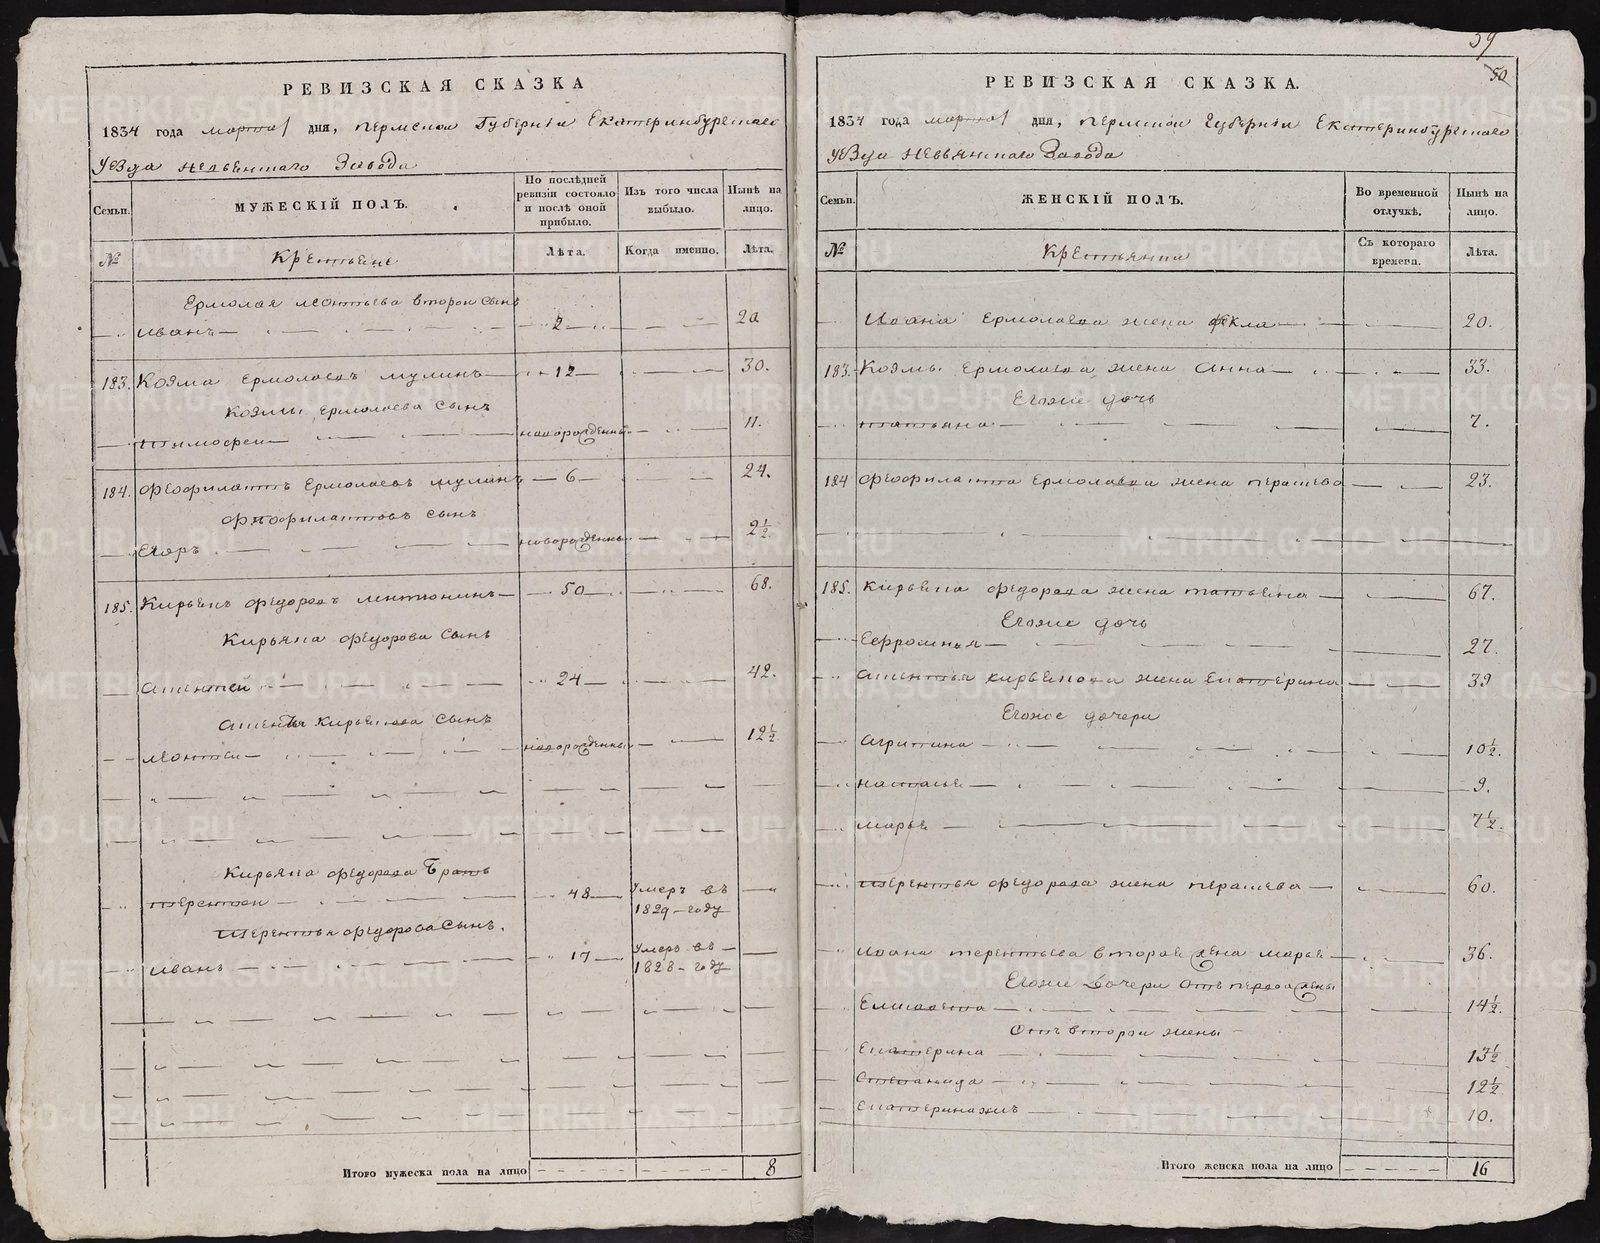 РЕВИЗСКАЯ СКАЗКА
1834 года марта 1 дня, Пермской Губернїи Екатеринбургскаго
уезда невьянскаго Завода
Семьи.
МУЖЕСКІЙ ПОЛЪ.
По послѣдней ревизіи состояло и послѣ оной прибыло.
Изъ того числа выбыло.
Нынѣ на лицо.
№
Крестьяне
Лѣта.
Когда именно.
Лѣта.
Ермолая леонтьева второй сынъ
иванъ 2 20
183. Козма ермолаевъ мулинъ 12 30.
Козмы ермолаева сынъ
тимофеи новорожденны 11.
184. феофилактъ ермолаевъ мулинъ 6 24.
феофилактовъ сынъ
Егоръ новорожденны 2½
185. Кирьянъ федоровъ 50 68.
Кирьяна федорова сынъ
24 42.
кирьянова сынъ
леонтеи новорожденны 12½
Кирьяна федорова братъ
терентеи 48 умеръ въ 1829 году
терентья федорова сынъ.
иванъ 17 умеръ въ 1828 году
Итого мужеска пола на лицо 8
59
50
РЕВИЗСКАЯ СКАЗКА.
1834 года марта 1 дня, пермской губернїи Екатеринбургскаго
уезда невьянскаго Завода
Семьи.
ЖЕНСКІЙ ПОЛЪ.
Во временной отлучкѣ.
Нынѣ на лицо.
№
Крестьянки
Съ котораго времени.
Лѣта.
Ивана ермолаева жена фекла 20.
183. Козмы ермолаева жена анна 33.
Егоже дочь
татьяна 7.
184 феофилакта ермолаева жена парасковья 23.
185. Кирьяна федорова жена татьяна 67.
Егоже дочь
27.
кирьянова жена екатерина 39
Егоже дочери
агрипина 10½.
насталья 9.
марья 7½.
терентья федорова жена 60.
Ивана терентьева вторая жена марья 36.
Егоже дочери отъ первой жены
Елисавета 14½.
Отъ второй жены
Екатерина 13½
степанида 12½
екатеринажъ 10.
Итого женска пола на лицо 16
METRIKI.GASO-URAL.RU